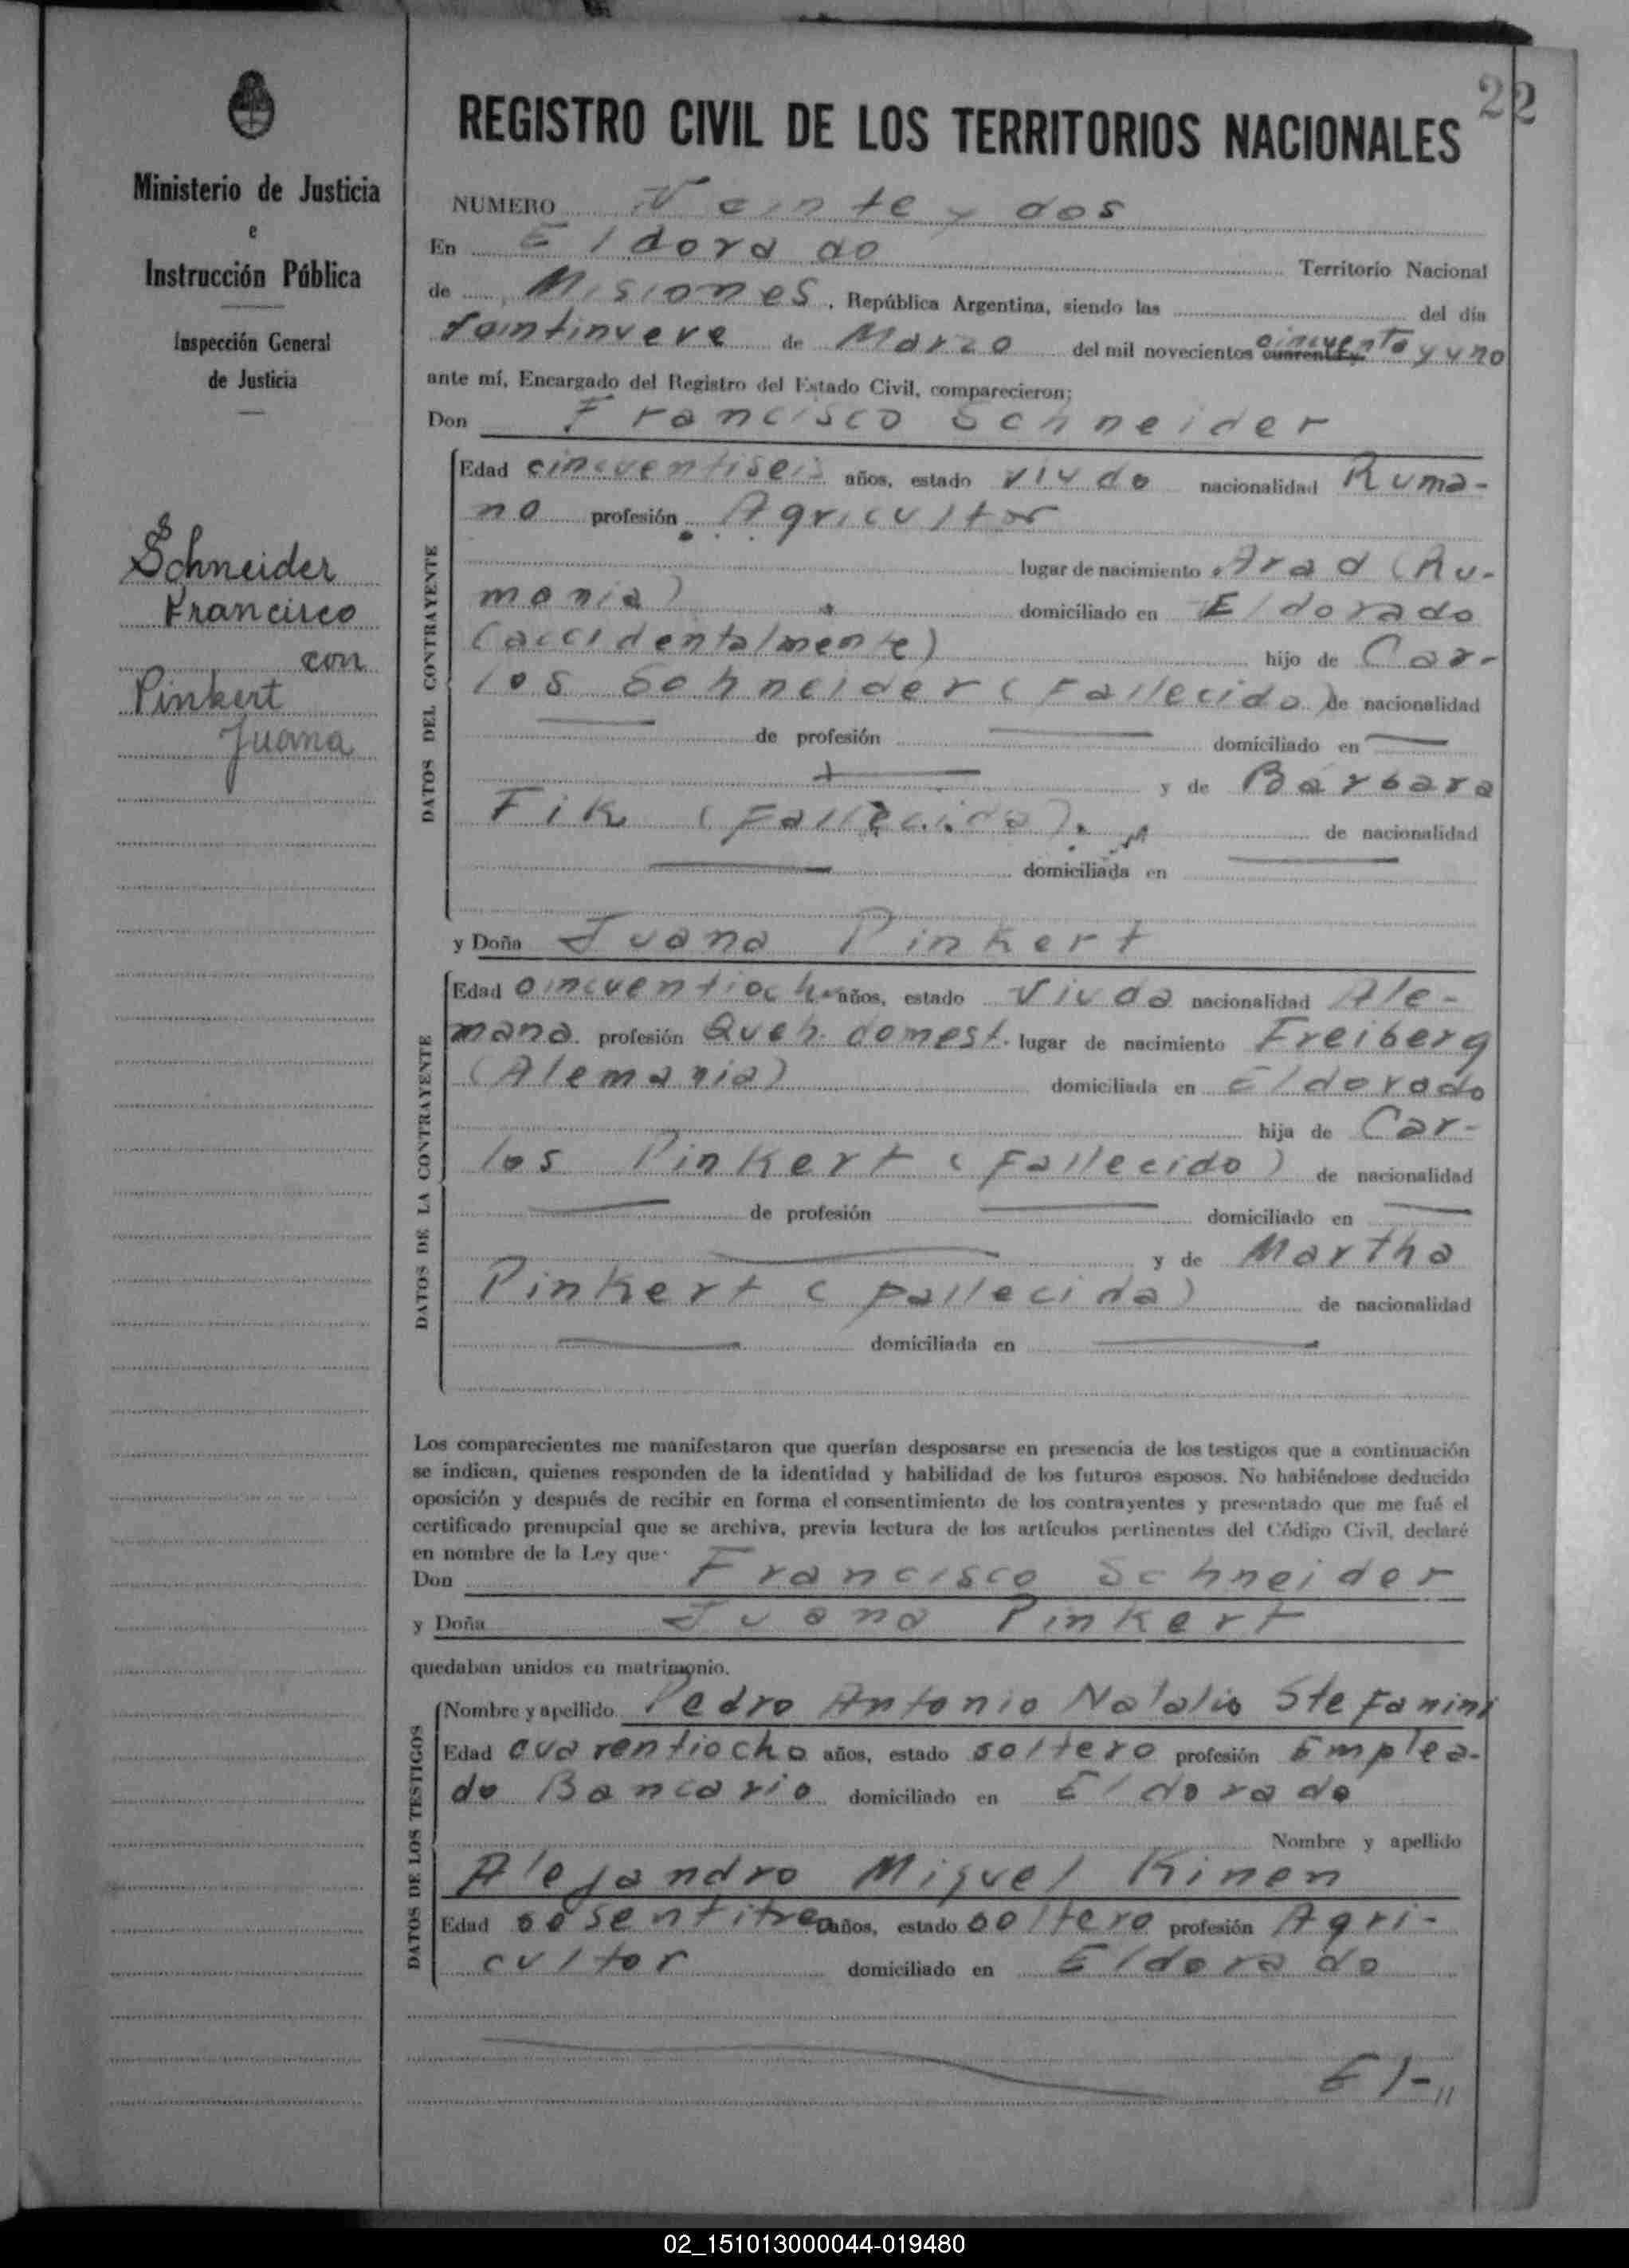 22
REGISTRO CIVIL DE LOS TERRITORIOS NACIONALES
Ministerio de Justicia
e
Instrucción Pública
Inspección General
de Justicia
Schneider
Francisco
con
Pinkert
Juana
NUMERO Veinte y dos
En Eldorado Territorio Nacional
de Misiones, República Argentina, siendo las del día
de Marzo del mil novecientos cuarenta cincuenta y uno
ante mí, Encargado del Registro del Estado Civil, comparecieron:
Don Francisco Schneider
DATOS DEL CONTRAYENTE
Edad cincuentiseis años, estado viudo nacionalidad Ruma-
no profesión Agricultor
lugar de nacimiento Arad (Ru-
mania) domiciliado en Eldorado
(accidentalmente) hijo de Car-
los Schneider (Fallecido) de nacionalidad
de profesión domiciliado en
y de Barbara
Fik (Fallecida). de nacionalidad
domiciliada en
y Doña Juana Pinkert
DATOS DE LA CONTRAYENTE
Edad cincuentioch años, estado Viuda nacionalidad Ale-
mana. profesión Queh. domest. lugar de nacimiento Freiberg
(Alemania) domiciliada en Eldorado
hija de Car-
los Pinkert (Fallecido) de nacionalidad
de profesión domiciliado en
y de Martha
Pinkert (Fallecida) de nacionalidad
domiciliada en
Los comparecientes me manifestaron que querían desposarse en presencia de los testigos que a continuación
se indican, quienes responden de la identidad y habilidad de los futuros esposos. No habiéndose deducido
oposición y después de recibir en forma el consentimiento de los contrayentes y presentado que me fué el
certificado prenupcial que se archiva, previa lectura de los artículos pertinentes del Código Civil, declaré
en nombre de la Ley que:
Don Francisco Schneider
y Doña Juana Pinkert
quedaban unidos en matrimonio.
DATOS DE LOS TESTIGOS
Nombre y apellido Pedro Antonio Natalio Stefanini
Edad cuarentiocho años, estado soltero profesión Emplea-
do Bancario domiciliado en Eldorado
Nombre y apellido
Alejandro Miguel Kinen
Edad sesentitres años, estado soltero profesión Agri-
cultor domiciliado en Eldorado
El-//
02_151013000044-019480